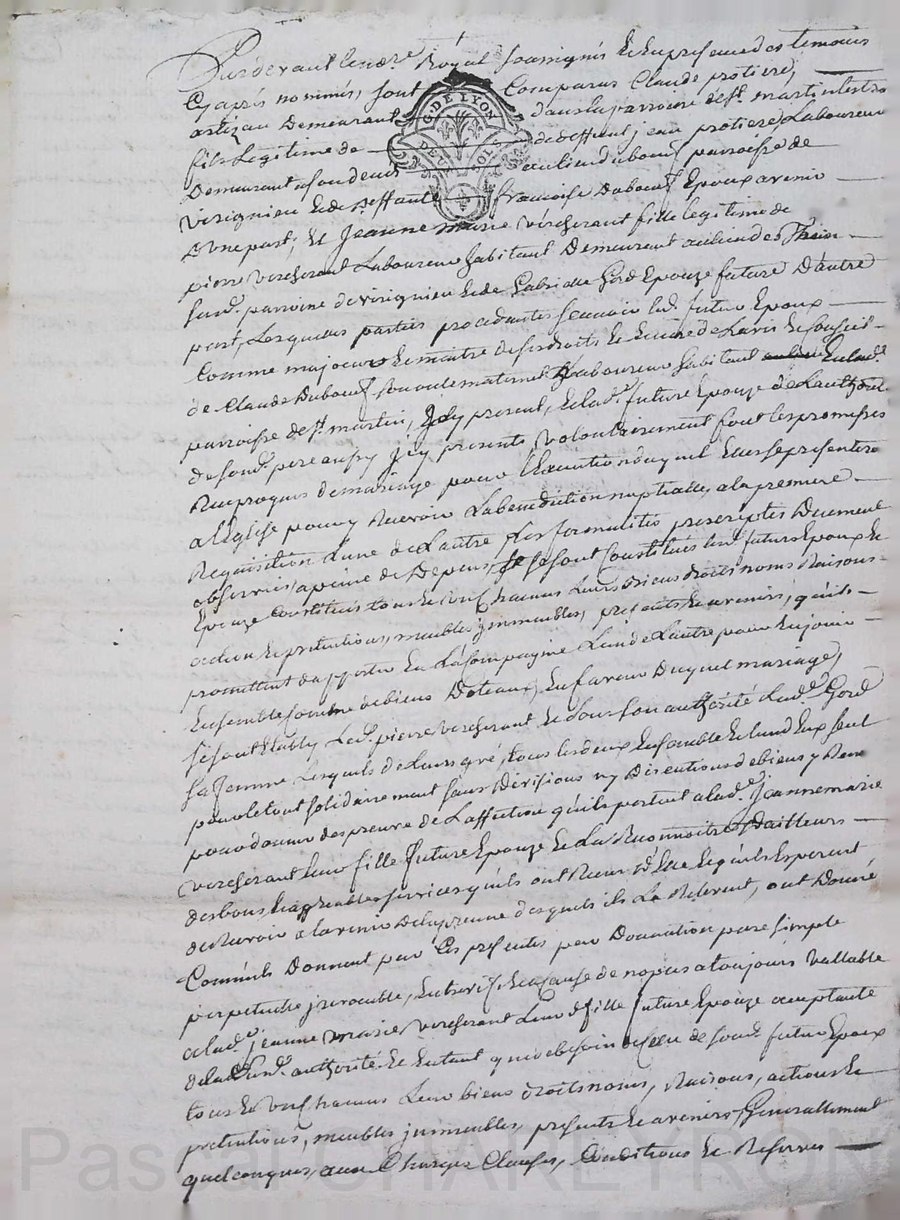 Pardevant le nore. Royal soussignés Et En presence des temoins
Cy après nommés, sont Comparus Claude protiere,
artizan Demeurant dans la parroisse de st. martin
fils Legitime de deffunt jean protiere, Laboureur
Demeurant au lieu dubouef parroisse de
virignieu Et de Deffunte francoise Dubouef Epoux avenir
D'une part, Et Jeanne marie vercherant fille legitime de
pierre vercherant Laboureur habitant Demeurant au lieu des
parroisse de virignieu Et de Gabrielle Gord Epouze future D'autre
part, Lesquelles parties procedantes scauoir led. futur Epoux
Comme majeur Et maitre de ses droits Et Encore de Lavis Et Conseil
de Claude Dubouef son oncle maternel Laboureur habitant En lad.
parroisse de st. martin, Icy present, Et lad. future Epouze de L'authorité
de son d. pere aussy Icy presents, volontairement font les promesses
Reciproques de mariage pour L'Execution duquel Elles se presenteront
a l'Eglise pour y Recevoir La benediction nuptialle, a la premiere
Requisition L'une de L'autre, Les formalités prescriptes Duement
observées, a peine de Depens, se sont Constitués lesd. futurs Epoux Et
Epouze Constitués tous Et un Chacuns Leurs biens droits noms Raisons
action Et pretentions, meubles, immeubles, presents Et avenirs, qu'ils
promettent dapporter En La Compagnie L'un de L'autre pour En jouir
Ensemble Comme de biens Doteaux, En faveur Duquel mariage,
se sont Etably Led. pierre vercherant Et De son authorité Lad. Gord
sa femme Lesquels de Leurs gré, tous les deux Ensemble Et l'un d'Eux seul
pour le tout solidairement sans Divisions ny Discutions de biens y Rene
pour donner des preuve de L'affection qu'ils portent a lad. Jeanne marie
vercherant Leur fille future Epouze Et La Reconnoitre D'ailleurs
des bons Et agreables services qu'ils ont Recue D'Elle Et qu'ils Esperent
de Recevoir a lavenir De la preuve desquels ils La Relevent, ont Donné
Comme ils Donnent par Ces presentes par Donnation pure simple
perpetuelle irrevocable, Entrevifs Et a Cause de nopces a toujours vallable
a lad. jeanne marie vercherant Leur d. fille future Epouze acceptante
de lad. authorité Et Entant que de besoin de Celle de sond. futur Epoux
tous Et un Chacuns Leur biens droits noms, Raisons, actions Et
pretentions, meubles immeubles, presents Et avenirs, Generallement
quelconques, aux Charges Clauses, Conditions Et Reserves
G. DE LYON
DEUX SOLS
Pascal CHAREYRON